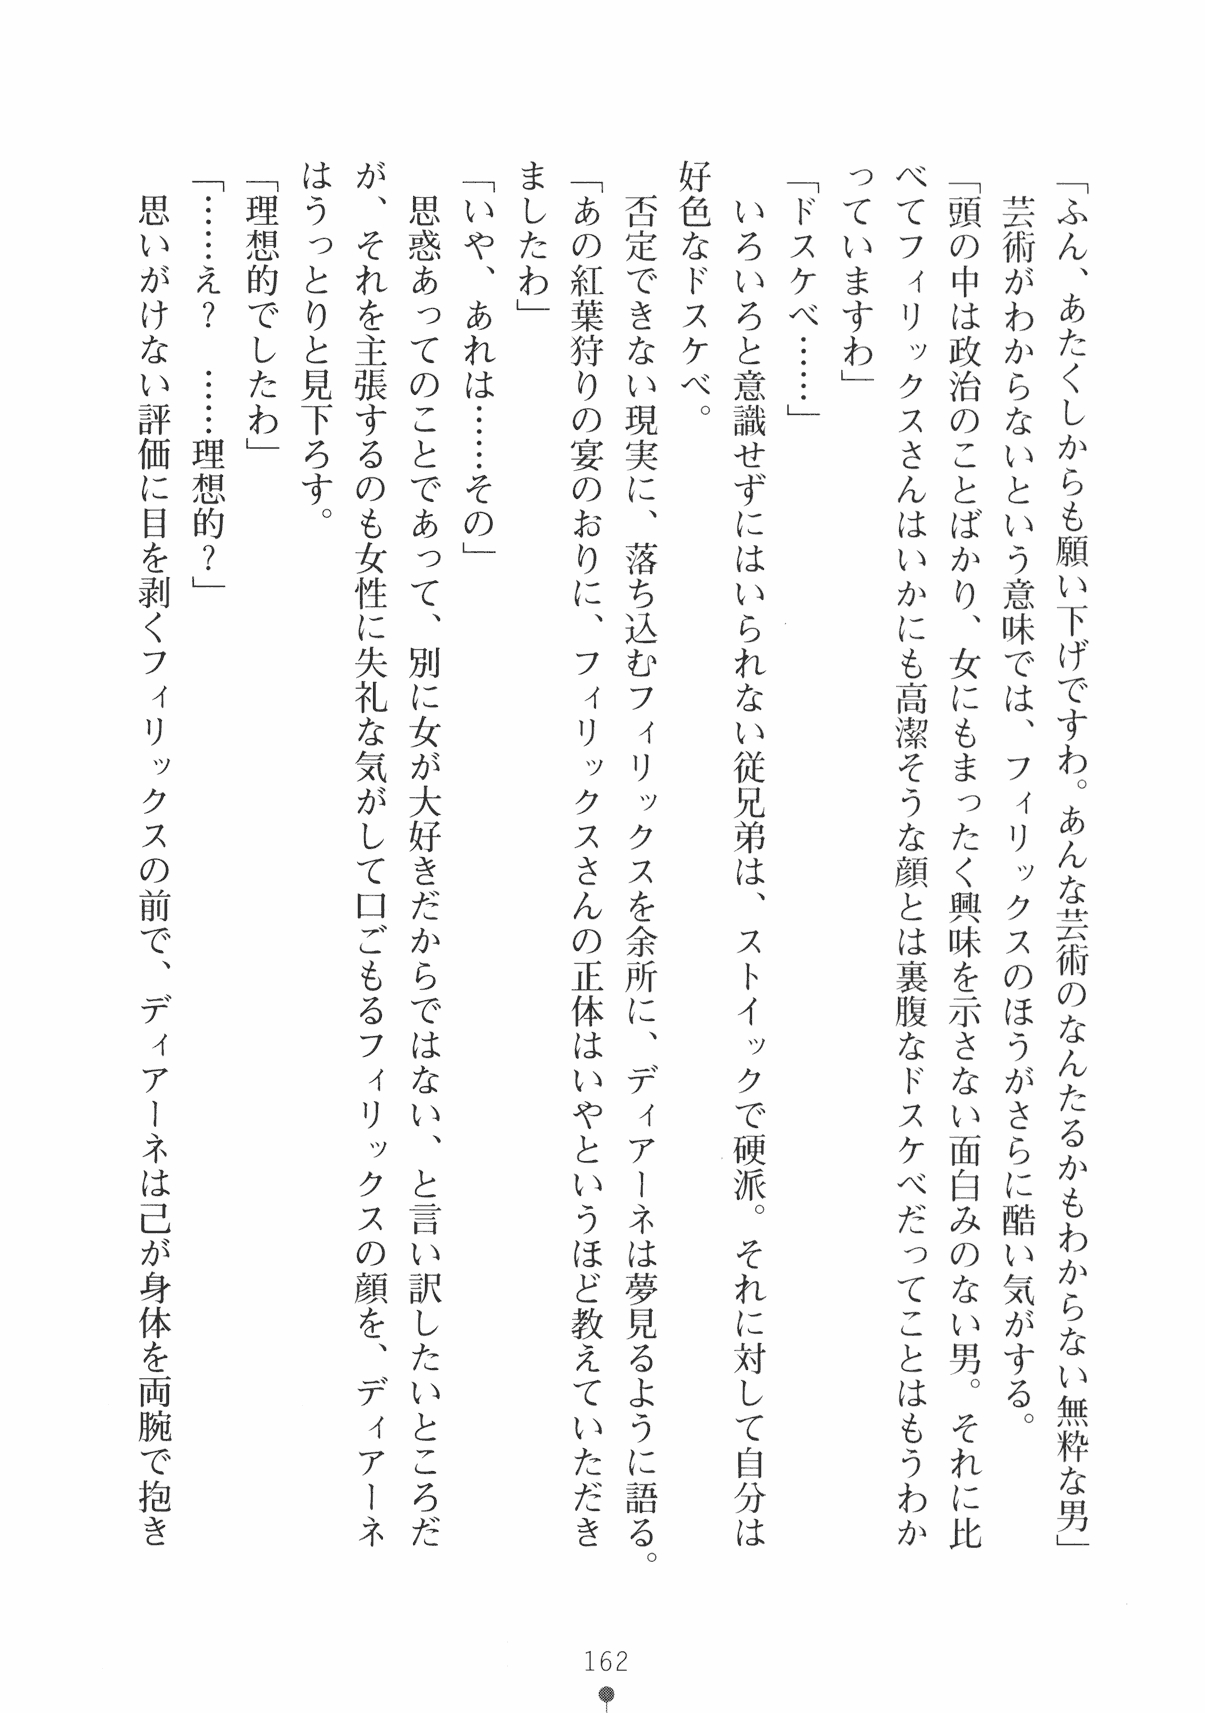 「ふん、あたくしからも願い下げですわ。あんな芸術のなんたるかもわからない無粋な男」
　芸術がわからないという意味では、フィリックスのほうがさらに酷い気がする。
「頭の中は政治のことばかり、女にもまったく興味を示さない面白みのない男。それに比
べてフィリックスさんはいかにも高潔そうな顔とは裏腹なドスケベだってことはもうわか
っていますわ」
「ドスケベ……」
　いろいろと意識せずにはいられない従兄弟は、ストイックで硬派。それに対して自分は
好色なドスケベ。
　否定できない現実に、落ち込むフィリックスを余所に、ディアーネは夢見るように語る。
「あの紅葉狩りの宴のおりに、フィリックスさんの正体はいやというほど教えていただき
ましたわ」
「いや、あれは……その」
　思惑あってのことであって、別に女が大好きだからではない、と言い訳したいところだ
が、それを主張するのも女性に失礼な気がして口ごもるフィリックスの顔を、ディアーネ
はうっとりと見下ろす。
「理想的でしたわ」
「……え？　……理想的？」
　思いがけない評価に目を剥くフィリックスの前で、ディアーネは己が身体を両腕で抱き
162